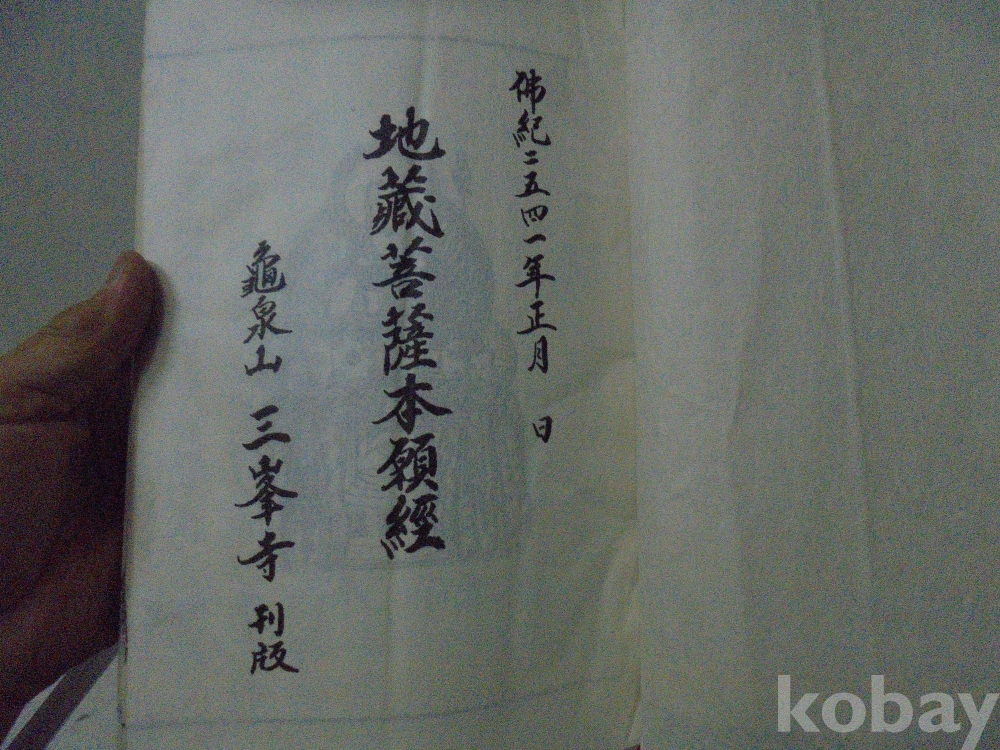 佛紀二五四一年正月 日
地藏菩薩本願經
龜泉山 三峯寺 刊版
kobay